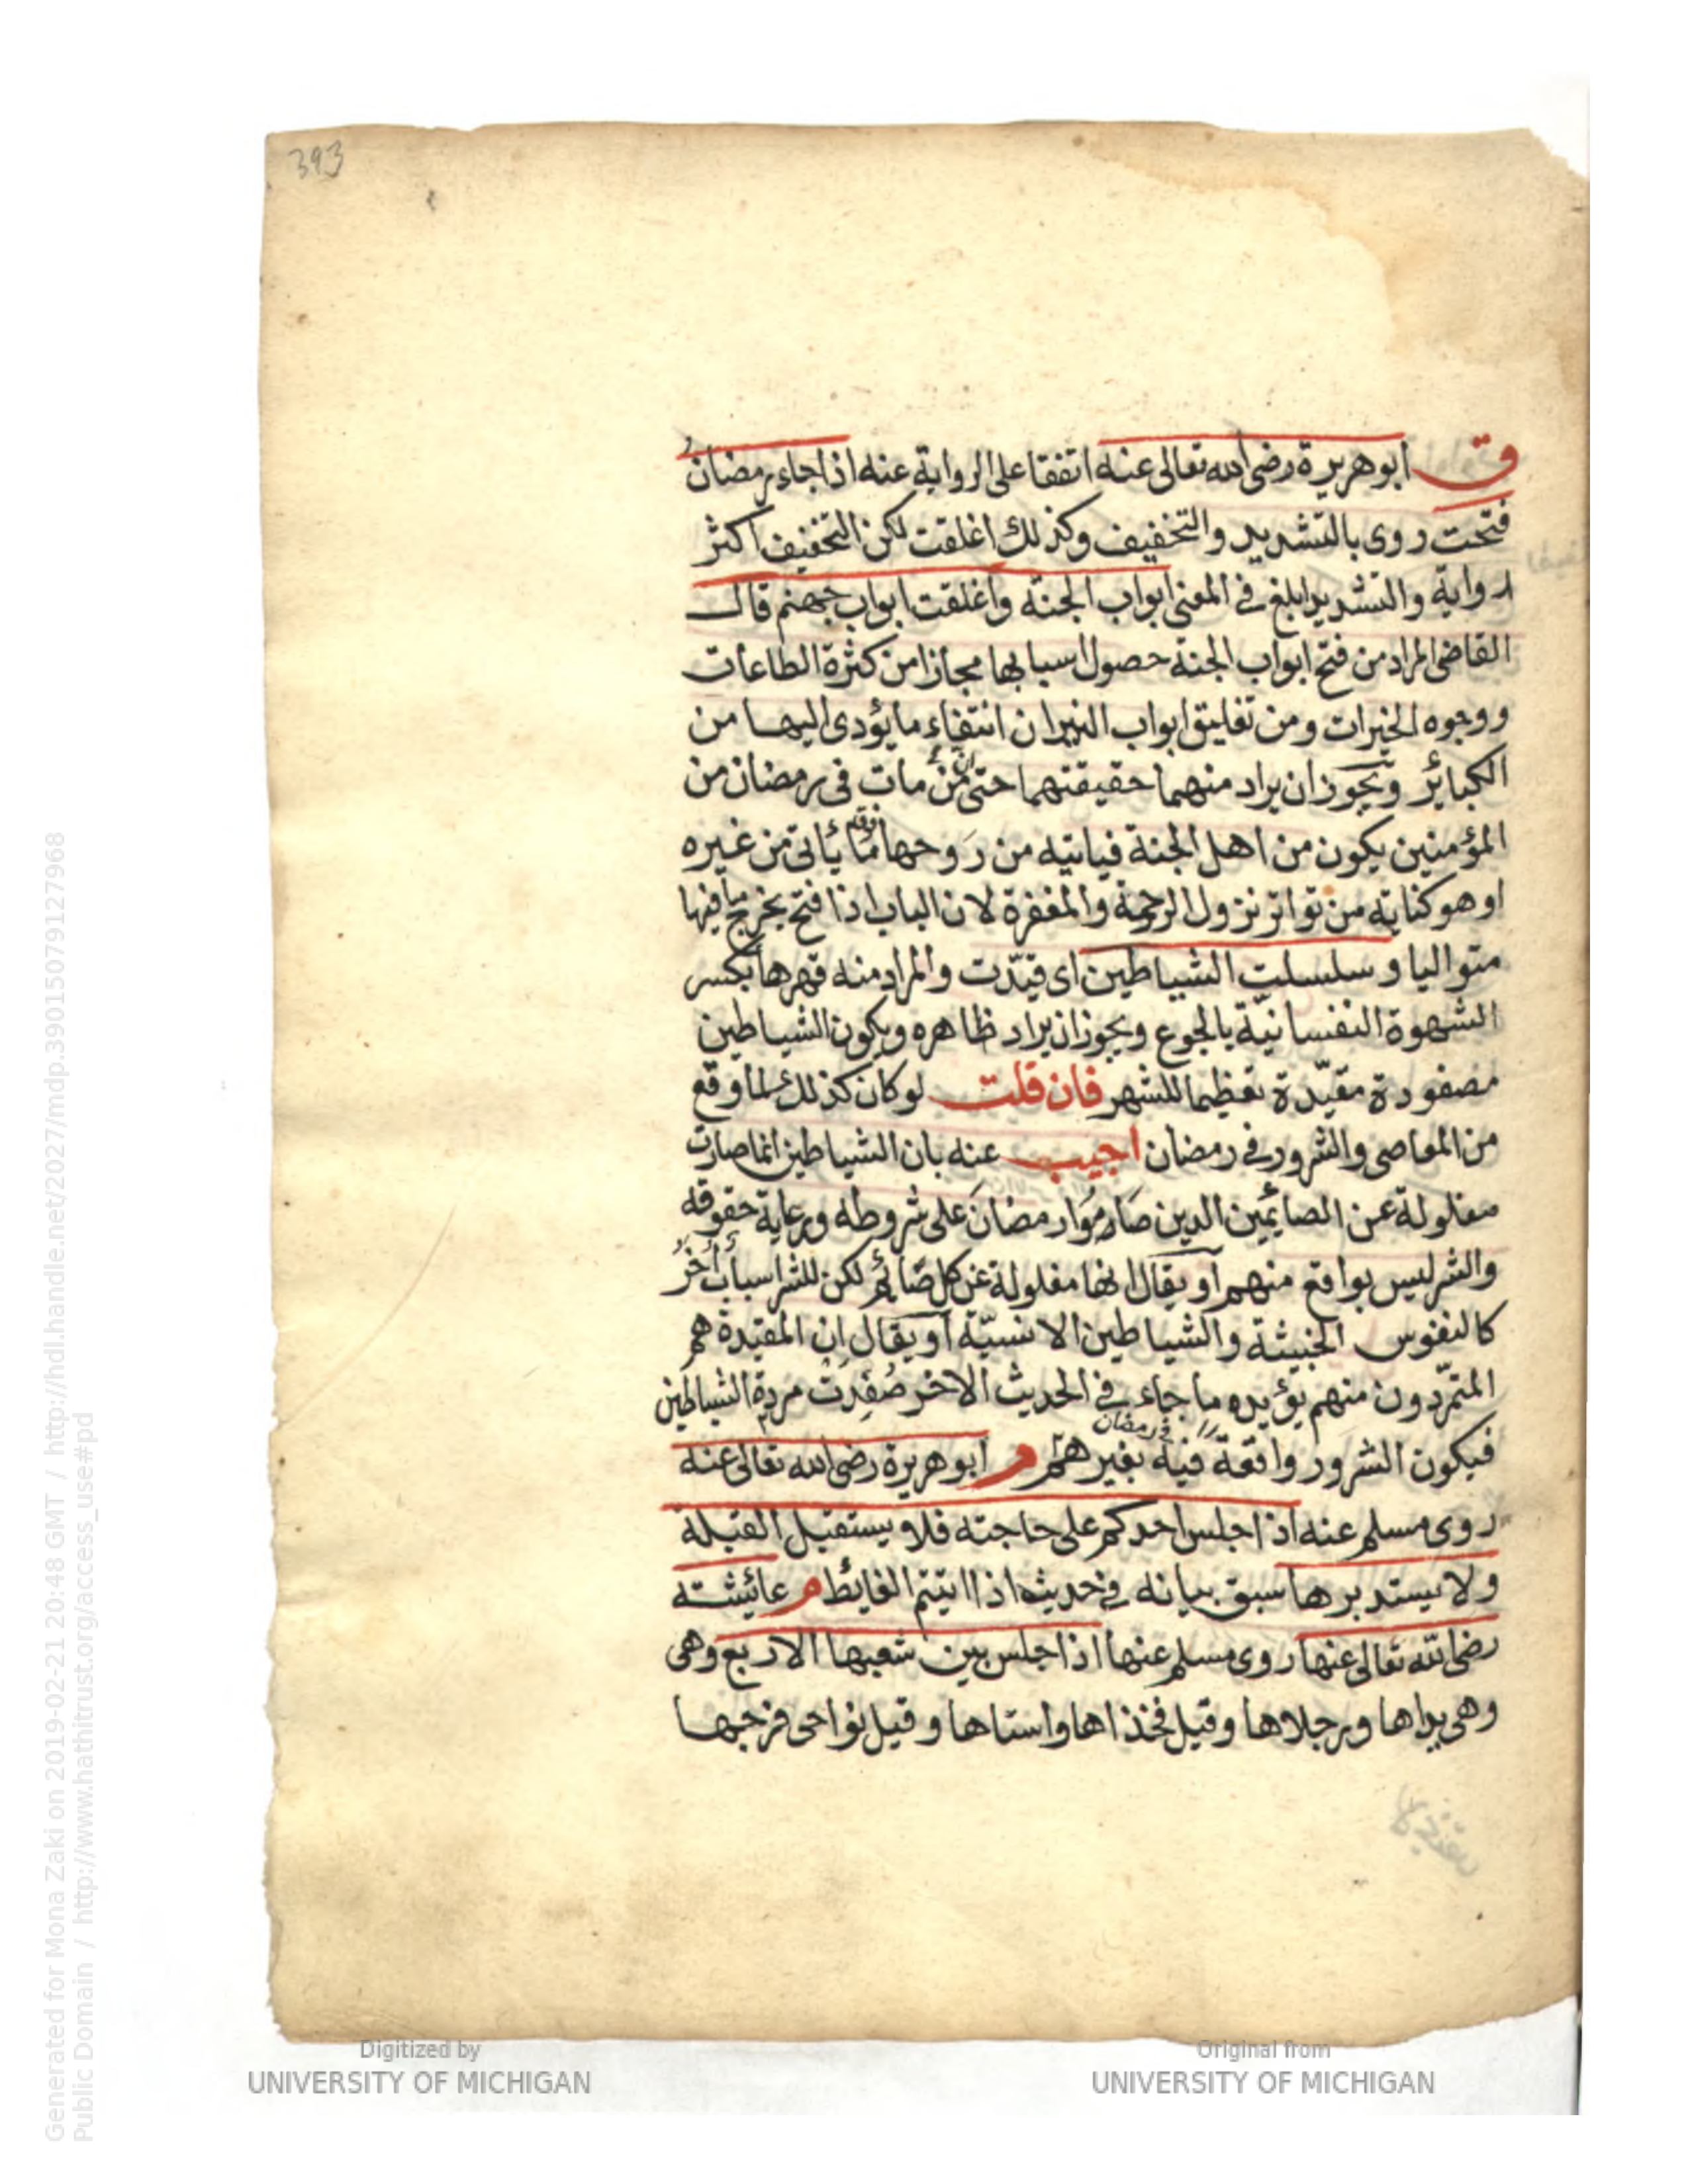 393
ق ابوهريرة رضى الله تعالى عنه اتفقا على الرواية عنه اذا جاء رمضانُ
فتحت روى بالتشديد والتخفيف وكذلك اغلقت لكن التخفيف اكثر
رواية والتشديد ابلغ في المعنى ابواب الجنة واغلقت ابواب جهنم قال
القاضى المراد من فتح ابواب الجنة حصول اسبابها مجازا من كثرة الطاعات
ووجوه الخيرات ومن تغليق ابواب النيران انتفاء ما يؤدى اليها من
الكبائر ويجوز ان يراد منهما حقيقتهما حتى انّ من مات فى رمضان من
المؤمنين يكون من اهل الجنة فيأتيه من رَوحها ما فوق ما يأتى من غيره
او هو كناية من تواتر نزول الرحمة والمغفرة لان الباب اذا فتح يخرج ما فيها
متواليا و سلسلت الشياطين اى قيّدت والمراد منه قهرها بكسر
الشهوة النفسانيّة بالجوع ويجوز ان يراد ظاهره ويكون الشياطين
مصفودة مقيّدة تعظيما للشهر فان قلت لو كان كذلك لما وقع
من المعاصى والشرور في رمضان اجيب عنه بان الشياطين انما صارت
مغلولة عن الصائمين الذين صَامُوا رمضانَ على شروطه ورعاية حقوقه
والشر ليس بواقع منهم او يقال انها مغلولة عن كل صَائم لكن للشر اسبابٌ أُخَرُ
كالنفوس الخبيثة والشياطين الانسيّة او يقال ان المقيدة هم
المتمرّدون منهم يؤيده ما جاء في الحديث الاخر صُفِدَتْ مردة الشياطين
فيكون الشرور واقعة فيه في رمضان بغيرهم م ابوهريرة رضى الله تعالى عنه
روى مسلم عنه اذا جلس احدكم على حاجته فلا يستقبل القبلة
ولا يستدبرها سبق بيانه في حديث اذا اتيتم الغايط م عائيشة
رضى الله تعالى عنها روى مسلم عنها اذا جلس بين شعبها الاربع وهى
وهى يداها ورجلاها وقيل فخذاها واستاها وقيل نواحى فرجها
Generated for Mona Zaki on 2019-02-21 20:48 GMT / http://hdl.handle.net/2027/mdp.39015079127968
Public Domain / http://www.hathitrust.org/access_use#pd
Digitized by
UNIVERSITY OF MICHIGAN
Original from
UNIVERSITY OF MICHIGAN